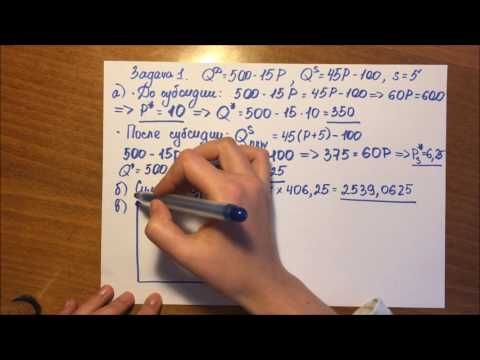 Задача 1. Qᴰ=500-15P, Qˢ=45P-100, s=5
а) · До субсидии: 500-15P=45P-100 => 60P=600
=> P*=10 => Q*=500-15·10=350
· После субсидии: Qˢ = 45(P+5)-100
500-15P 100 => 375=60P => P*=6,25
Q*=500 25
б) × 406,25 = 2539,0625
в)